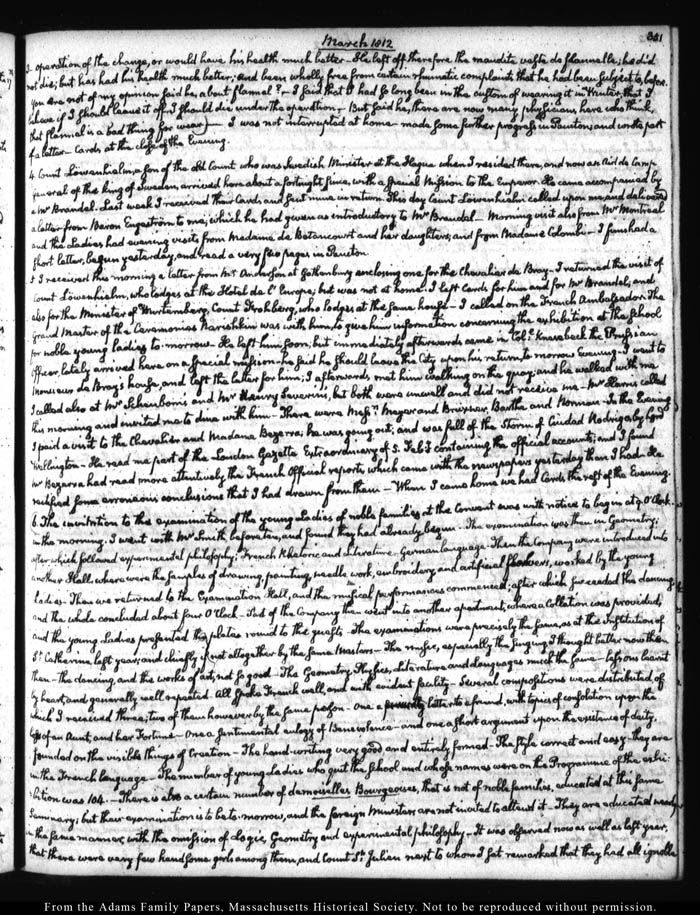 March 1812
301
3. operation of the change, or would have his health much better — He left off therefore the maudite veste de flannelle; he did
not die; but has had his health much better; and been wholly free from certain rhumatic complaints that he had been subject to, before.
you are not of my opinion said he, about flannel? — I said that I had so long been in the custom of wearing it in Winter, that I
believe if I should leave it off I should die under the operation — But said he, there are now many physicians here who think,
that flannel is a bad thing for wear) — I was not interrupted at home — made some further progress in Pauton; and wrote part
of a letter — Cards at the close of the Evening.
4. Count Löwenhielm, a son of the old Count who was Swedish Minister at the Hague when I resided there, and now an Aid de Camp
general of the King of Sweden, arrived here about a fortnight since, with a special Mission to the Emperor. He came accompanied by
a Mr Brandel. Last week I received their Cards and sent mine in return. This day Count Löwenhielm called upon me, and delivered
a letter from Baron Engeström to me; which he had given as introductory to Mr Brandal — Morning visit also from Mr Montreal
and the Ladies had evening visits from Madame de Betancourt and her daughters; and from Madame Colombi — I finished a
short letter, begun yesterday, and read a very few pages in Pauton.
5. I received this morning a letter from Mr Anderson at Gothenburg enclosing one for the Chevalier de Bray — I returned the visit of
Count Löwenhielm, who lodges at the Hotel de l'Europe; but was not at home. I left Cards for him and for Mr Brandel; and
also for the Minister of Wurtemberg, Count Frohberg, who lodges at the same house — I called on the French Ambassador. The
Grand Master of the Ceremonies Narishkin was with him, to give him information concerning the exhibition at the School
for noble young ladies to-morrow. He left him soon; but immediately afterwards came in Coll: Knesebeck the Prussian
Officer, lately arrived here on a special mission — he said he should leave this City upon his return, to morrow Evening — I went to
Monsieur de Bray's house, and left the letter for him; I afterwards met him walking on the quay; and he walked with me
I called also at Mr Schuboni's and Mr Henry Severin's, but both were unwell and did not receive me — Mr Harris called
this morning and invited me to dine with him — There were Messrs Meyer and Bruxner, Barthe and Norman — In the Evening
I paid a visit to the Chevalier and Madame Bezerra; he was going out; and was full of the Storm of Ciudad Rodrigo by Lord
Wellington — He read me part of the London Gazette Extraordinary of 5. Feby containing the official accounts; and I found
Mr Bezerra had read more attentively the French Official reports, which came with the newspapers yesterday than I had. He
rectified some erroneous conclusions that I had drawn from them — When I came home we had Cards the rest of the Evening.
6. The invitation to the examination of the young Ladies of noble families at the Convent was with notice to begin at 9 O'Clock
in the morning. I went with Mr Smith before ten, and found they had already begun — The examination was then in Geometry;
after which followed experimental philosophy; French Rhetoric and Literature. German language. Then the Company were introduced into
another Hall, where were the samples of drawing, painting, needle work, embroidery and artificial flowers, worked by the young
Ladies — Then we returned to the Examination Hall, and the musical performances commenced; after which succeeded the dancing
and the whole concluded about four O'Clock — Part of the Company then went into another apartment, where a Collation was provided,
and the young Ladies presented the plates round to the guests — The examinations were precisely the same, as at the Institution of
St Catherine, last year; and chiefly if not altogether by the same Masters — The music, especially the singing I thought better now than
then — the dancing, and the works of art, not so good — The Geometry, Physics, Literature and languages much the same — lessons learnt
by heart, and generally well repeated. All spoke French well, and with evident facility — Several compositions were distributed of
which I received three; two of them however by the same person — One a letter to a friend, with topics of consolation upon the
loss of an Aunt, and her Fortune — One a sentimental eulogy of Benevolence — and one a short argument upon the existence of deity,
founded on the visible things of Creation — The hand-writing very good and entirely formed — The style correct and easy — they are
in the French language — The number of young Ladies who quit the School and whose names were on the Programme of the exhi:
:bition was 104. — There is also a certain number of demoiselles Bourgeoises, that is not of noble families, educated at this same
Seminary; but their examination is to be to-morrow, and the foreign Ministers are not invited to attend it — They are educated nearly
in the same manner, with the omission of Logic, Geometry and experimental philosophy — It was observed now as well as last year,
that there were very few handsome girls among them, and Count St Julien next to whom I sat remarked that they had all ignoble
From the Adams Family Papers, Massachusetts Historical Society. Not to be reproduced without permission.